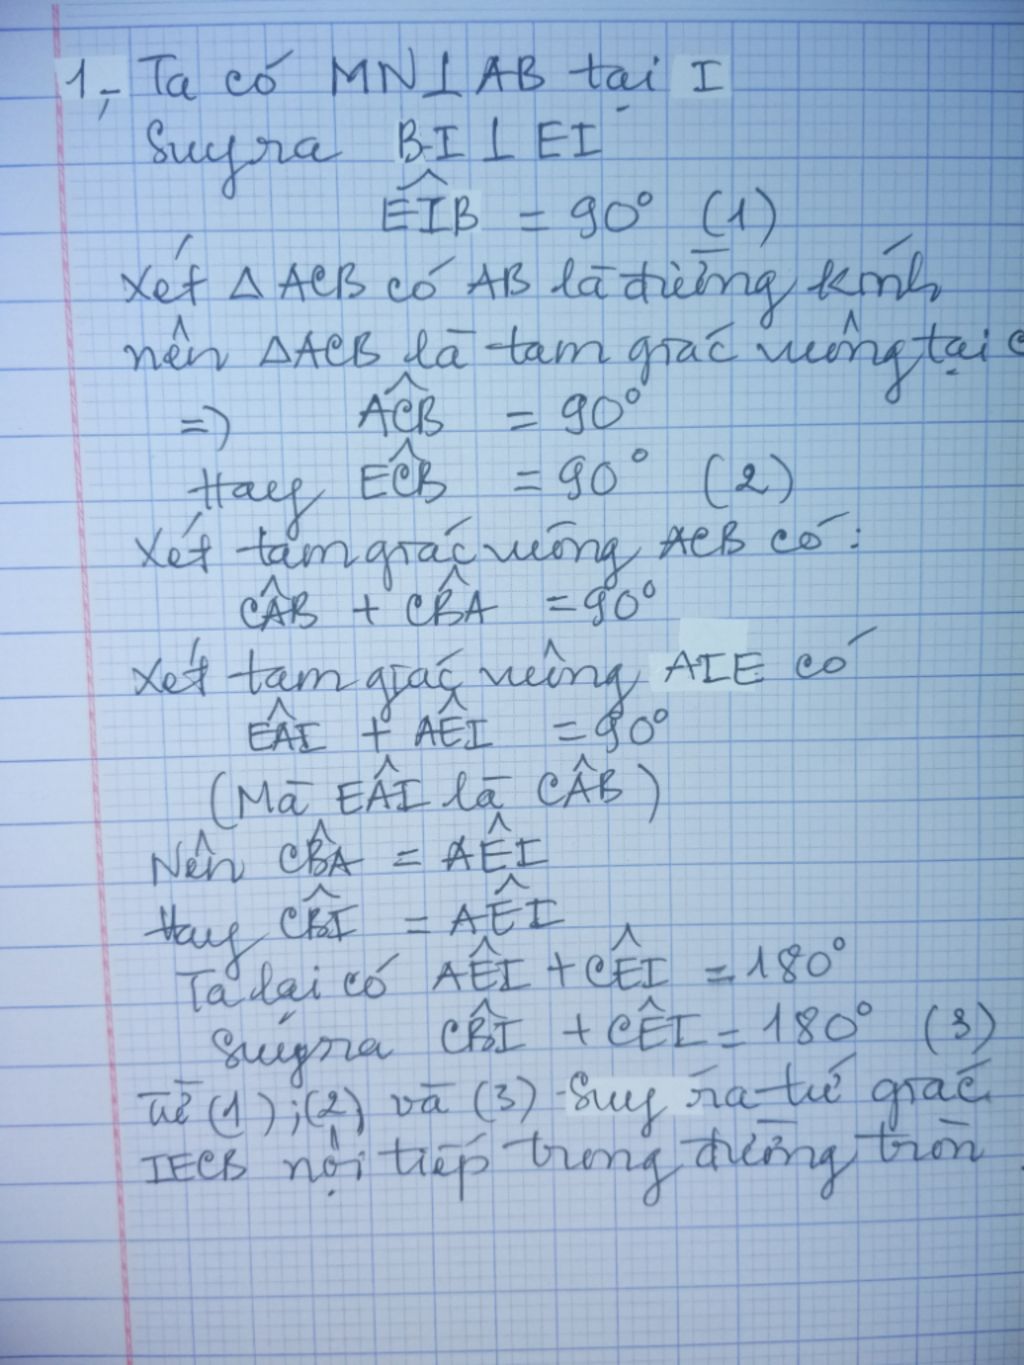 1, Ta có MN⊥AB tại I
Suy ra BI ⊥ EI
EÎB = 90° (1)
Xét △ ACB có AB là đường kính
nên △ACB là tam giác vuông tại C
=> AĈB = 90°
Hay EĈB = 90° (2)
Xét tam giác vuông ACB có:
CÂB + CB̂A = 90°
Xét tam giác vuông AIE có
EÂI + AÊI = 90°
(Mà EÂI là CÂB)
Nên CB̂A = AÊI
Hay CB̂I = AÊI
Ta lại có AÊI + CÊI = 180°
Suy ra CB̂I + CÊI = 180° (3)
Từ (1);(2) và (3) Suy ra tứ giác
IECB nội tiếp trong đường tròn.